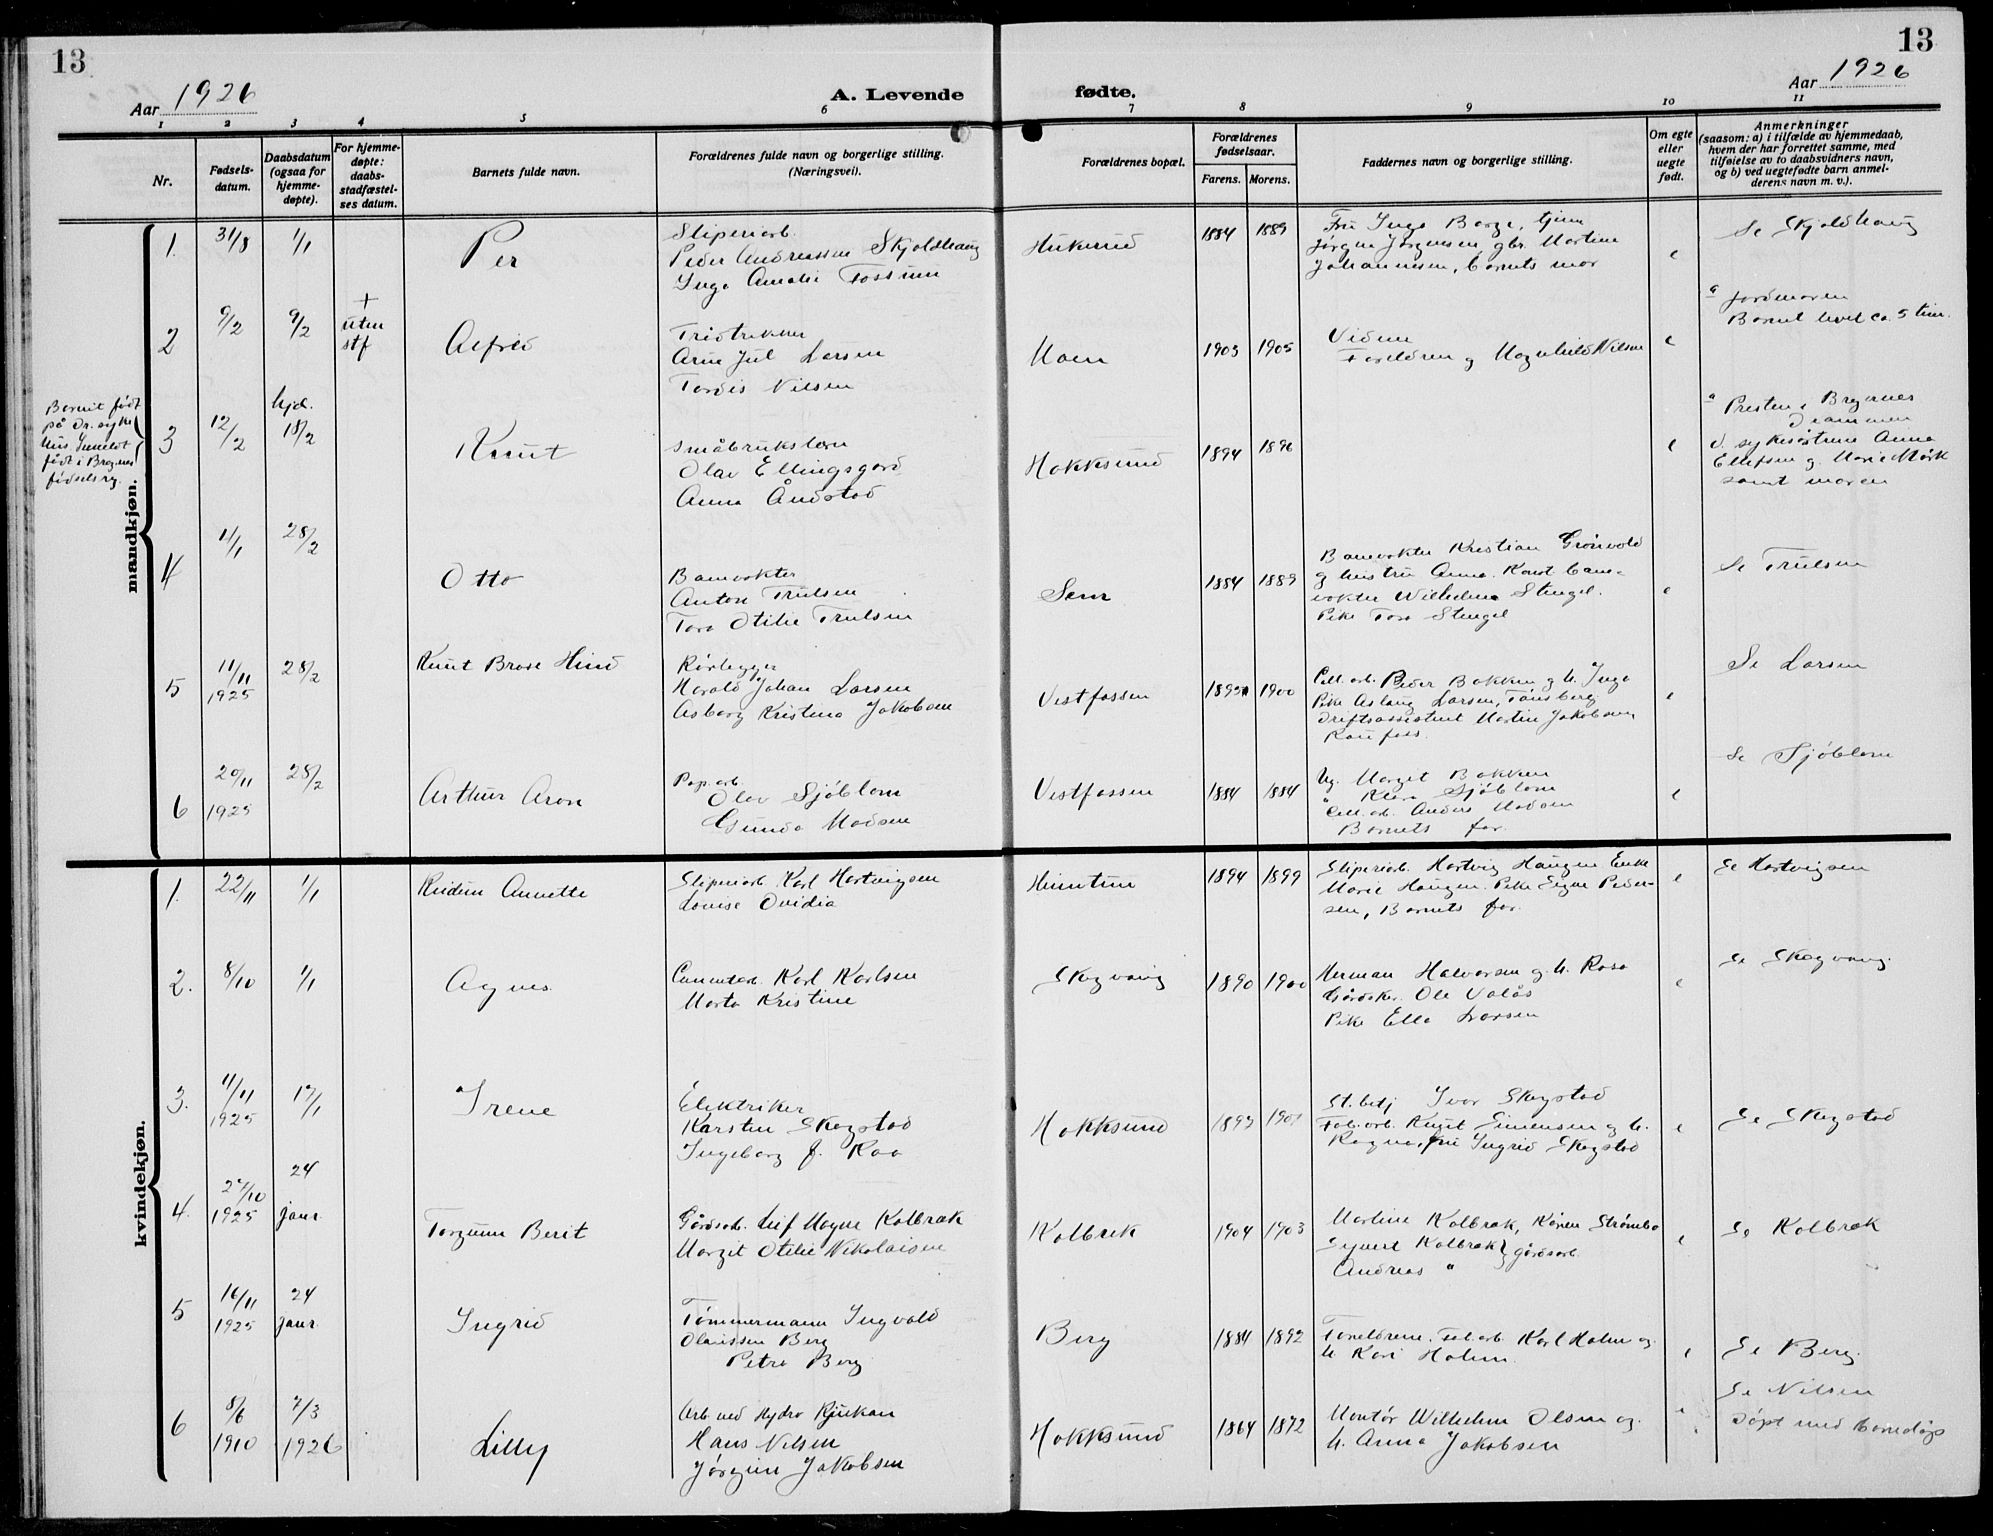 13
13
Aar 1926
A. Levende
fødte.
Aar 1926
1 2 3 4 5 6 7 8 9 10 11
Nr.
Fødsels-
datum.
Daabsdatum
(ogsaa for
hjemme-
døpte).
For hjemme-
døpte:
daabs-
stadfæstel-
ses datum.
Barnets fulde navn.
Forældrenes fulde navn og borgerlige stilling.
(Næringsvei).
Forældrenes bopæl.
Forældrenes
fødselsaar.
Farens. Morens.
Faddernes navn og borgerlige stilling.
Om egte
eller
uegte
født.
Anmerkninger
(saasom: a) i tilfælde av hjemmedaab,
hvem der har forrettet samme, med
tilføielse av to daabsvidners navn,
og b) ved uegtefødte barn anmel-
derens navn m. v.).
mandkjøn.
1. 31/8 1/1
Per
Sliperiarb.
Peder Andreassen Skjoldhaug
Inga Amalie Fossum
Huksund
1884 1889
Fru Inga Borge, tjener
Jørgen Jørgensen, gbr. Martin
Johannesen, barnets mor
e
Se Skjoldhaug
2 9/2 9/2
+
uten
stf
Alfred
Trådtrekker
Arne Jul Larsen
Tordis Nilsen
Moen
1903 1905
Vidner
Foreldren og Magnhild Nilsen
e
a jordmoren
Barnet levet ca. 5 tim.
Barnet født
på Dr. syke
hus
født i Brag.nes
fødselsrg.
3 12/2
hjd.
18/2
Knut
Småbruksl
Olav Ellingsgard
Anna Åndstad
Hokksund
1894 1896
e
a Presten i Bragernes
Drammen
v. sykesøstrene Anna
Ellefsen og Marie Mørk
samt moren
4 11/1 28/2
Otto
Banevokter
Anton Trulsen
Tora Otilie Trulsen
Sem
1884 1889
Banevokter Kristian Grønvold
og hustru Anna. Konst bane-
vokter Wilhelm Stengel.
Pike Tora Stengel
e
Se Trulsen
5 11/11
1925
28/2
Knut Brose Hind
Rørlegger
Harald Johan Larsen
Asborg Kristine Jakobsen
Vestfossen
1895 1900
Cell. arb. Peder Bakken og h. Inga
Pike Aslaug Larsen, Tønsberg
Driftsassistent Martin Jakobsen
Raufoss.
e
Se Larsen
6 20/11
1925
28/2
Arthur Aron
Pap. arb.
Olav Sjöblom
Gunda Madsen
Vestfossen
1884 1884
Ug. Margit Bakken
" Klara Sjöblom
Cell. arb. Anders Madsen
Barnets far.
e
Se Sjöblom
kvindekjøn.
1. 22/11 1/1
Reidun Annette
Sliperiarb. Karl Hartvigsen
Lovise Ovidia
1894 1899
Sliperiarb. Hartvig Haugen Enke
Marie Haugen. Pike Signe Peder-
sen, Barnets far.
e
Se Hartvigsen
2. 8/10 1/1
Agnes
Cementarb. Karl Karlsen
Marta Kristine
Skogvang
1890 1900
Herman Halvorsen og h. Rosa
Gårdsker. Ole Valås
Pike Ella Larsen
e
Se Skogvang
3. 11/11
1925
17/1
Irene
Elektriker
Karsten Skogstad
Ingeborg f. Roa
Hokksund
1893 1901
St. betj Ivar Skogstad
Fab. arb. Knut Simensen og h.
Ragna, fru Ingrid Skogstad
e
Se Skogstad
4. 27/10
1925
24
janr.
Torgunn Berit
Gårdsarb. Leif Magne Kolbræk
Margit Otilie Nikolaisen
Kolbrek
1904 1903
Martine Kolbræk, Karen Strømbo
Syvert Kolbræk } gårdsarb.
Andreas "
e
Se Kolbræk
5 16/11
1925
24
janr.
Ingrid
Tømmermann Ingvald
Olaussen Berg
Petra Berg
Berg
1884 1892
Foreldrene. Fab. arb. Karl Holm og
h. Kari Holm.
e
Se Berg.
6 8/6
1910
7/3
1926
Lilly
Arb. ved Hydro Rjukan
Hans Nilsen
Jørgine Jakobsen
Hokksund
1864 1872
Montør Wilhelm Olsen og
h. Anna Jakobsen
e
Se Nilsen
døpt med barnedåp